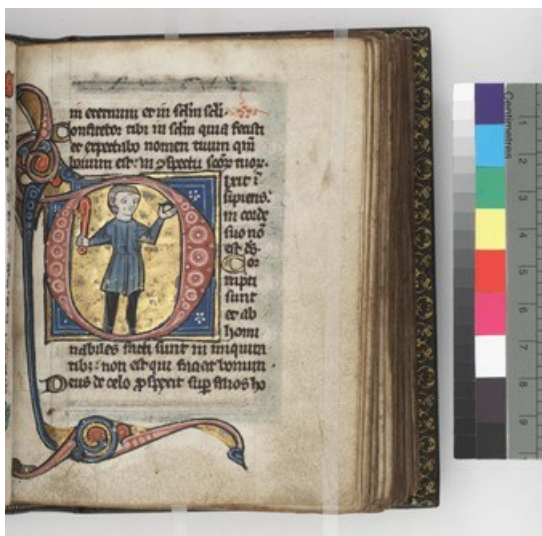 in eternum et in sclm scli
Confitebor tibi in sclm quia fecisti
et expectabo nomen tuum qm
bonum est in ɔspectu scōꝝ tuoꝝ
Dixit ī
sipiens
in corde
suo nō
est ds
Cor
rupti
sunt
et ab
homi
nabiles facti sunt in iniquita
tibi non est qui faciat bonum
Deus de celo ꝓspexit sup filios ho
Centimetres
1
2
3
4
5
6
7
8
9